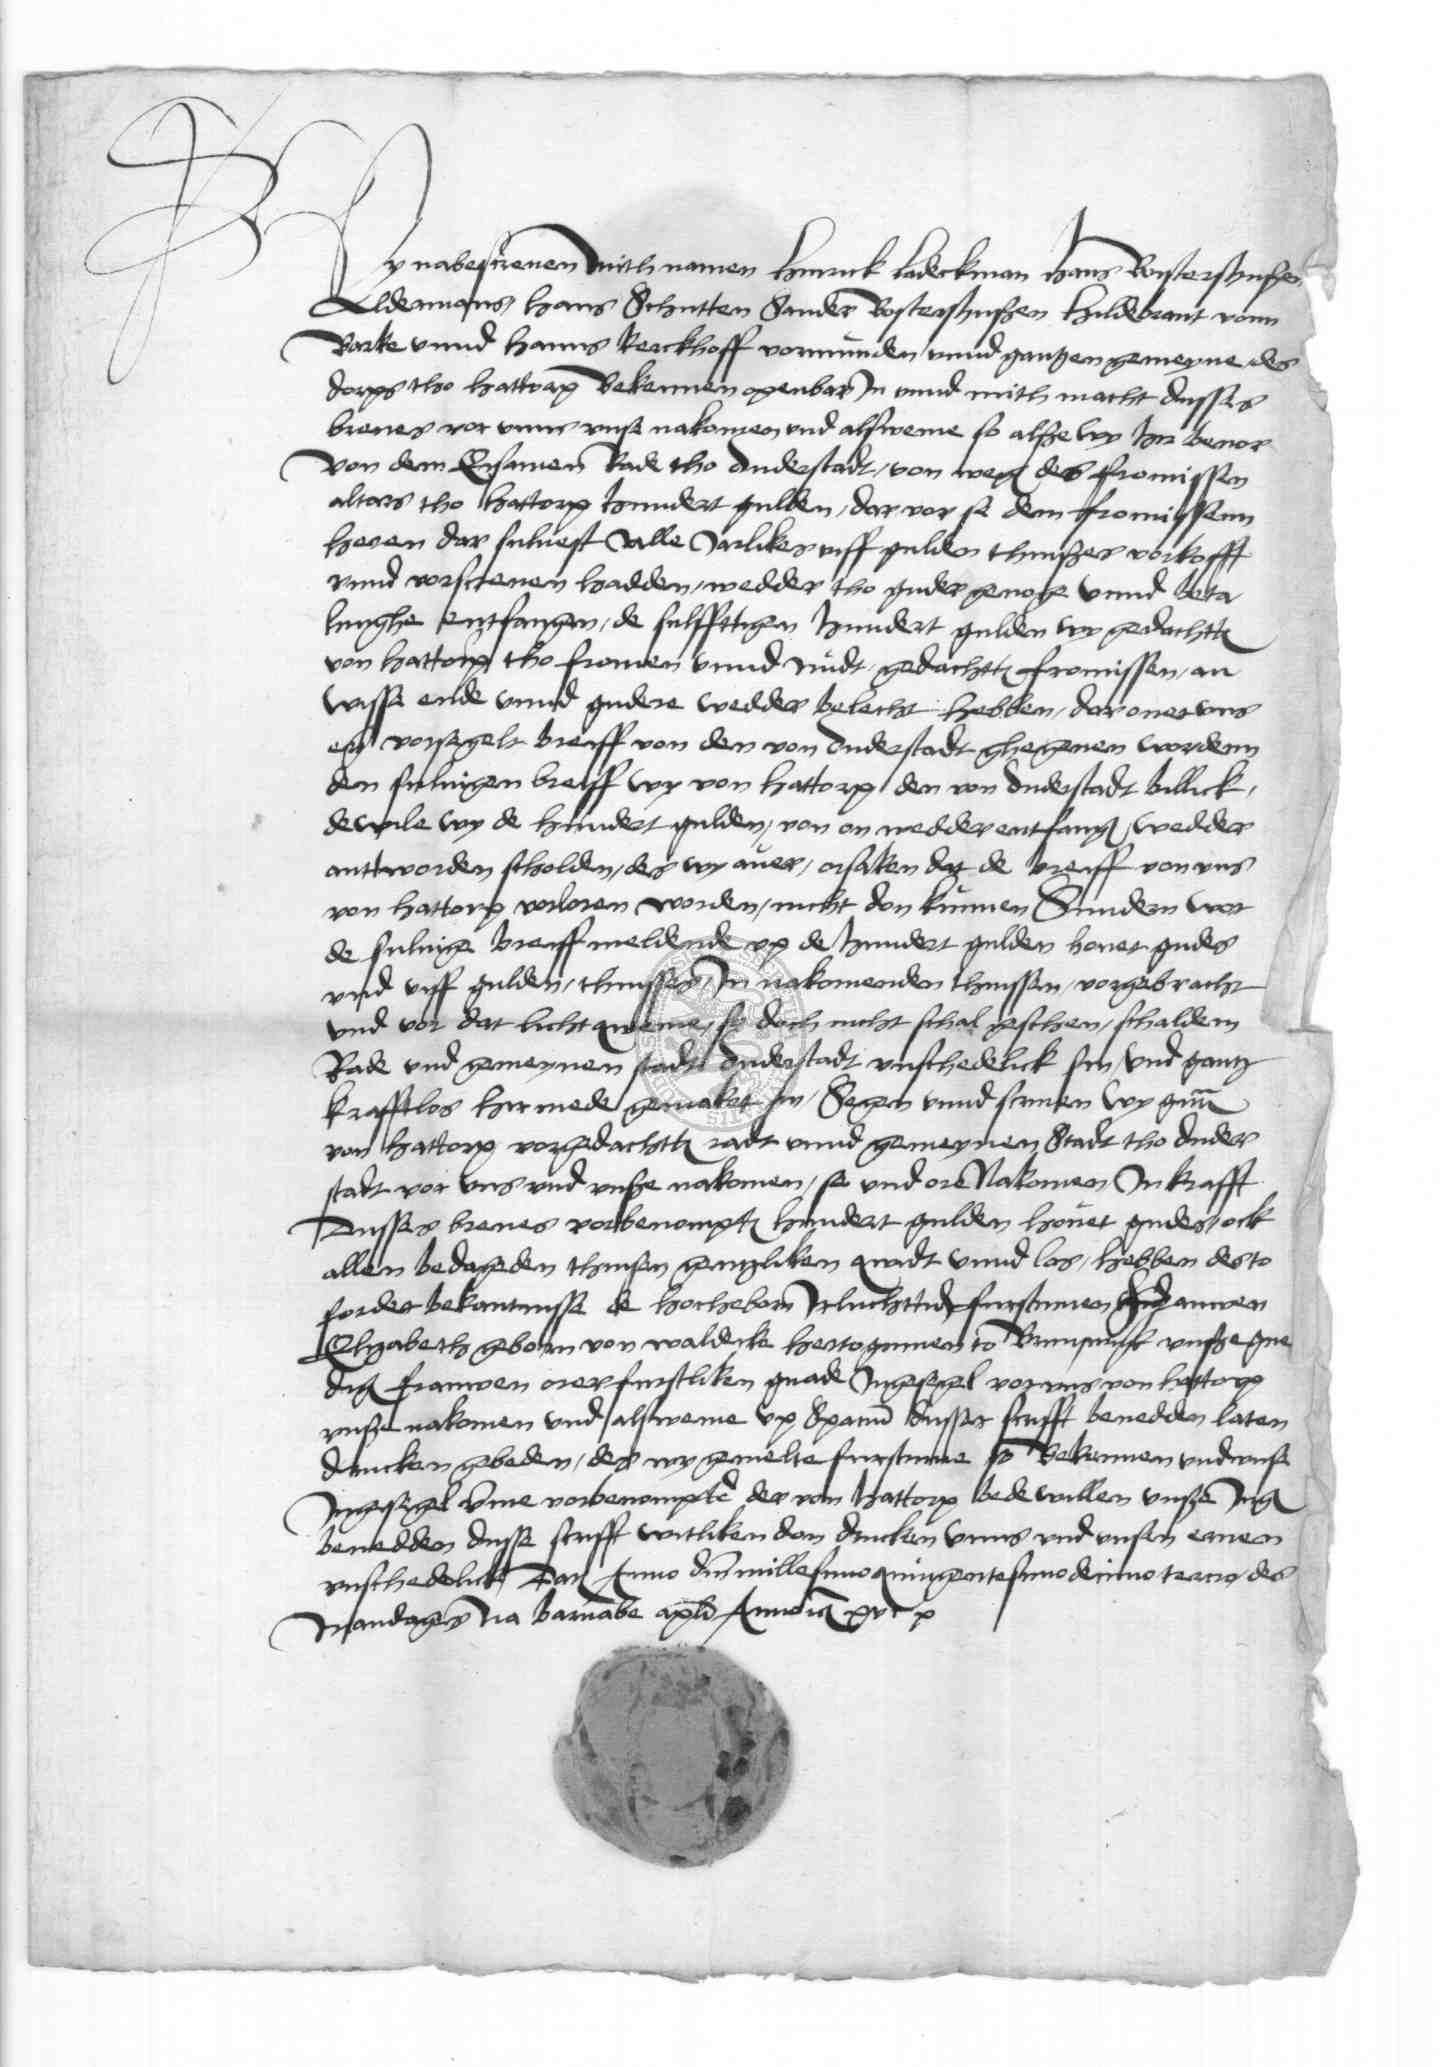 Wy nabescreuen mith namen Hinrick Ladeckman Hans
Oldermans, Hans Schutten Sander Hildebrant vonn
Barke vnnd Hanns Kerckhoff vormunden vnnd gantzen gemeyne des
dorps tho Hattorp Bekennen openbar In vnnd mith macht dusses
breues vor vnns vnse nakomen vnd alsweme so alße wy hir beuor
von dem Ersamen Rade tho Duderstadt, von weg des fromissen
altars tho Hattorp hundert gulden, dar vor se dem fromissenn
heren dar suluest alle Jarlikes viff gulden thinßes vorkofft
vnnd vorscreuen hadden, wedder tho guder genoge vnnd beta
linghe entfangen, de sulfftigen hundert gulden wy gedacht
von Hattorp tho fromen vnnd nudt gedacht fromissen, an
wisse ende vnnd gudere wedder belecht hebben, dar ouer vns
eyn vorsegelt breiff von den von Duderstadt ghegeuen wordenn
den suluigen breiff wy von Hattorp den von Duderstadt billick,
dewile wy de hundert gulden, von on wedder entfang, wedder
antworden scholden, des wy auer, orsaken dat de breiff von vns
von Hattorp vorloren worden, nicht don kunnen Sundern wor
de suluige breiff meldende vp de hundert gulden houet gudes
vnd viff gulden, thinsses, In nakomenden thinssen, vorgebracht
vnd vor dat licht queme, so doch nicht schal geschen, schal dem
Rade vnd gemeynen stadt Duderstadt vnschedelick sin, vnd gantz
krafftlos hir mede gemaket sin, Segen vnnd scriuen wy
von Hattorp vorgedacht radt vnnd gemeynen Stadt tho Duder
stadt vor vns vnd vnße nakomen, se vnd ore Nakomen In krafft
Dusses breues vorbenompt hundert gulden houet gudes, ock
allen bedageden thinsen gentzliken quidt vnnd los, hebben des to
forder bekantnisse de hocheborn furstinnen frauwen
Elyzabeth geborn von Waldecke hertoginnen to Brunswigk vnße gne
dig frauwen orer furstliken gnade Ingesegel vor vns von Hattorp
vnße nakomen vnd alsweme vp Spacium dusser scrifft benedden laten
drucken gebeden, des wy gemelte furstinne so bekennen vnd vnse
Ingesegel vmme vorbenompte der von Hattorp bede willen vnße
benedden dusse scrifft witliken don drucken vnns vnd vnsen eruen
vnschedelick Dat Anno dni millesimo quingentesimo decimo tercio, des
Mandages Na Barnabe apli Anno